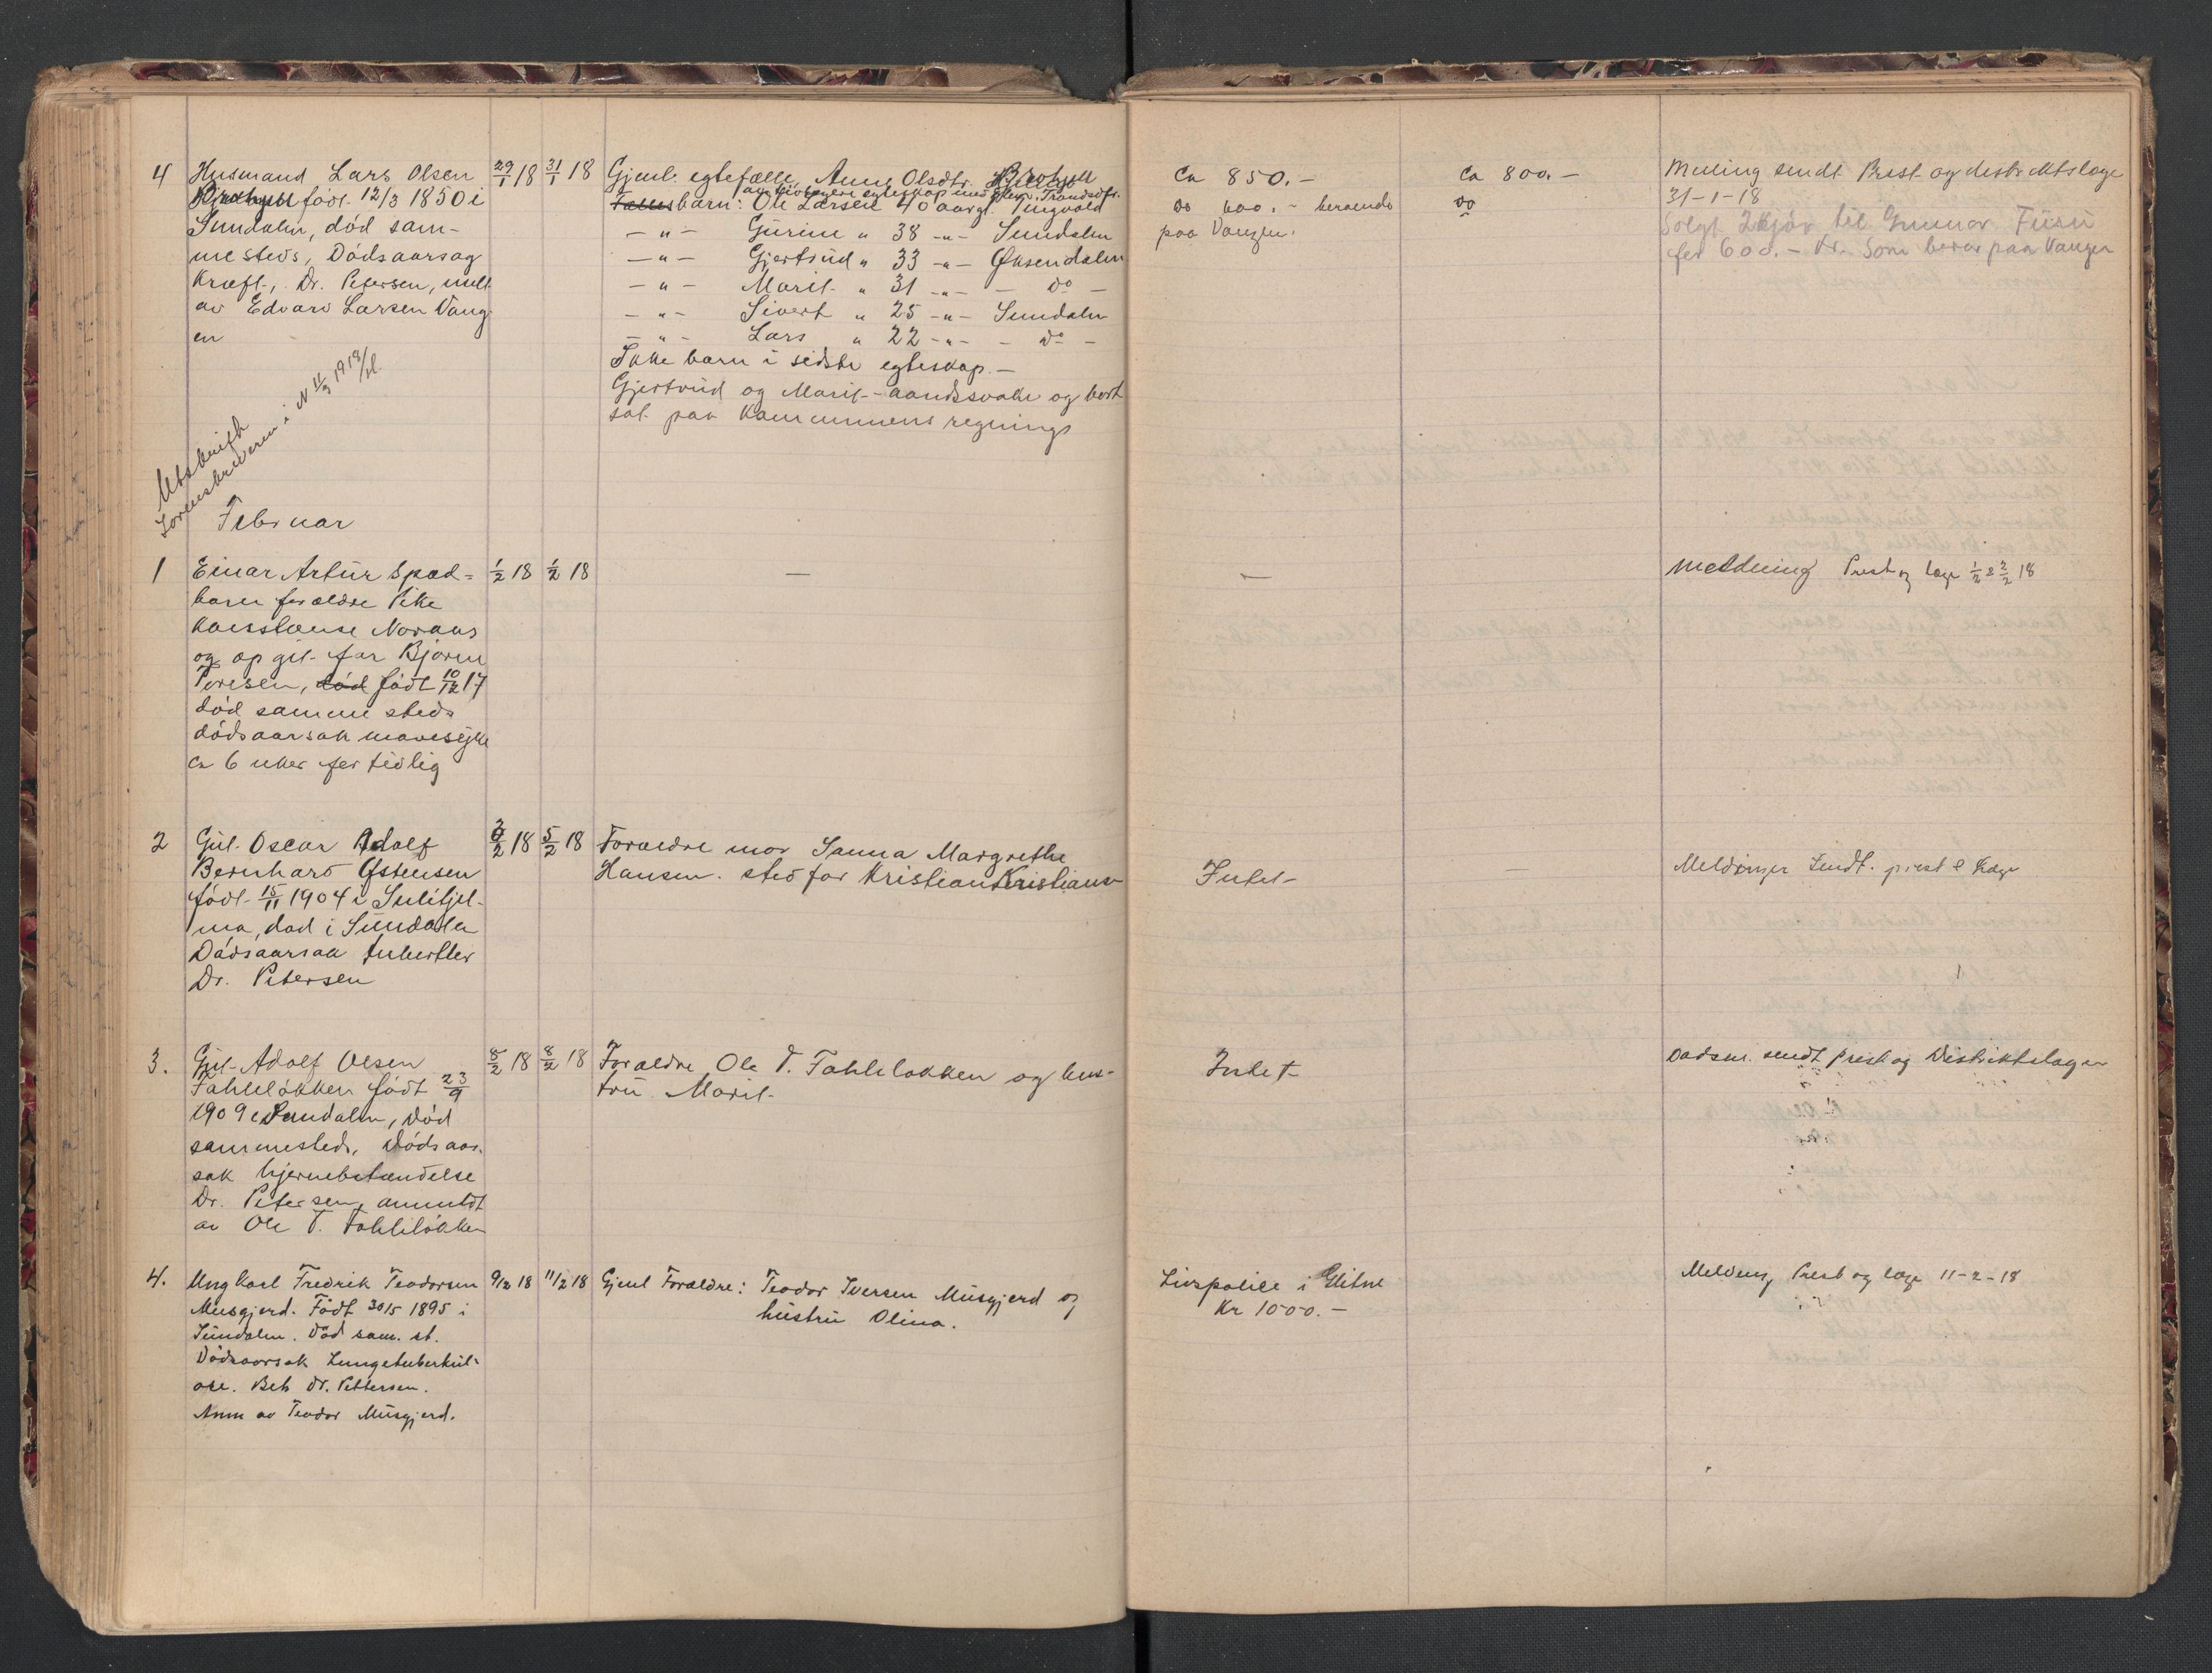 4 Husmand Lars Olsen 29/1 18 31/1 18 Gjenl. egtefælle Anne Olsdtr. Brohyll Ca 850.- Ca 800.- Melling sendt Prest og distriktslæge
Brohyll født 12/3 1850 i av tidligere egteskap med Trondsdtr.
Fælles barn: Ole Larsen 40 aar gl. Tingvold do 600.- beroende do 31-1-18
Sundalen, død sam- -"- Gurine " 38 -"- Sundalen paa Vangen. Solgt 2 kjør til Gunnar Furu
mesteds, Dødsaarsag -"- Gjertrud " 33 -"- Øksendalen for 600.- kr. som beror paa Vangen
Kræft, Dr. Petersen, melt -"- Marit " 31 -"- - do -
av Edvard Larsen Vang- -"- Sivert " 25 -"- Sundalen
en -"- Lars " 22 -"- - do -
Ikke barn i sidste egteskap.-
Gjertrud og Marit - aandssvake og bort
sat paa kommunens regning
Utskrift
Sorenskriveren i N 11/3 1918
Februar
1 Einar Artur Spæd- 1/2 18 1/2 18 — — Meldning Prest og læge 1/2 & 2/2 18
barn forældre Pike
Konstanse Noraas
og opgit far Bjørn
Toresen, død født 10/12 17
død samme steds
dødsaarsak mavesyke
ca 6 uker for tidlig
2 Gut Oscar Adolf 3/2 18 5/2 18 Forældre mor Sanna Margrethe
Bernhard Østensen Hansen. sted far Kristian Kristians- Intet- — Meldinger sendt. prest & læge
født 15/11 1904 i Sulitjel-
ma, død i Sundalen
Dødsaarsak tuberkler
Dr. Petersen
3. Gut Adolf Olsen 8/2 18 8/2 18 Forældre Ole T. Fahleløkken og hus- Intet Dødsm. sendt prest og Distriktslægen
Fahleløkken født 23/9 tru Marit-
1909 i Sundalen, Død
sammesteds, Dødsaar-
sak hjernebetændelse
Dr. Petersen, anmeldt
av Ole T. Fahleløkken
4. Ungkarl Fredrik Teodorsen 9/2 18 11/2 18 Gjenl Forældre: Teodor Iversen Musgjerd og Livspolise i Glitne Melding Prest og læge 11-2-18
Musgjerd. Født 30/5 1895 i hustru Olina. Kr 1000.-
Sundalen. Død sam. st.
Dødsaarsak Lungetuberkul-
ose. Beh Dr. Pettersen.
Anm av Teodor Musgjerd.